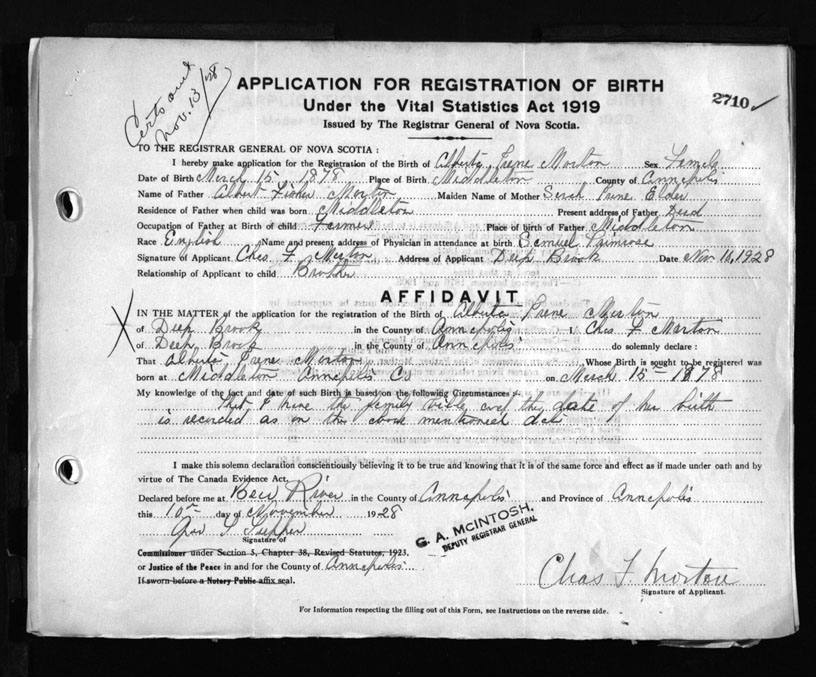 Certs and
Nov. 13/28
APPLICATION FOR REGISTRATION OF BIRTH
Under the Vital Statistics Act 1919
Issued by The Registrar General of Nova Scotia.
2710 ✓
TO THE REGISTRAR GENERAL OF NOVA SCOTIA:
I hereby make application for the Registration of the Birth of Alberta Irene Morton Sex Female
Date of Birth March 15 1878 Place of Birth Middleton County of Annapolis
Name of Father Albert Fisher Morton Maiden Name of Mother Serah Jane Elder
Residence of Father when child was born Middleton Present address of Father Dead
Occupation of Father at Birth of child Farmer Place of birth of Father Middleton
Race English Name and present address of Physician in attendance at birth Samuel Primrose
Signature of Applicant Chas F Morton Address of Applicant Deep Brook Date Nov 10, 1928
Relationship of Applicant to child Brother
AFFIDAVIT
X
IN THE MATTER of the application for the registration of the Birth of Alberta Irene Morton
of Deep Brook in the County of Annapolis I. Chas F Morton
of Deep Brook in the County of Annapolis do solemnly declare:
That Alberta Irene Morton Whose Birth is sought to be registered was
born at Middleton Annapolis Co on March 15 - 1878
My knowledge of the fact and date of such Birth is based on the following Circumstances
That I have the family bible and the date of her birth
is recorded as on the above mentioned date
I make this solemn declaration conscientiously believing it to be true and knowing that it is of the same force and effect as if made under oath and by
virtue of The Canada Evidence Act.
Declared before me at Bear River in the County of Annapolis and Province of Annapolis
this 10th day of November 1928
Geo S Tupper
Signature of
Commissioner under Section 5, Chapter 38, Revised Statutes, 1923,
or Justice of the Peace in and for the County of Annapolis
If sworn before a Notary Public affix seal.
G. A. McINTOSH,
DEPUTY REGISTRAR GENERAL
Chas F. Morton
Signature of Applicant.
For Information respecting the filling out of this Form, see Instructions on the reverse side.